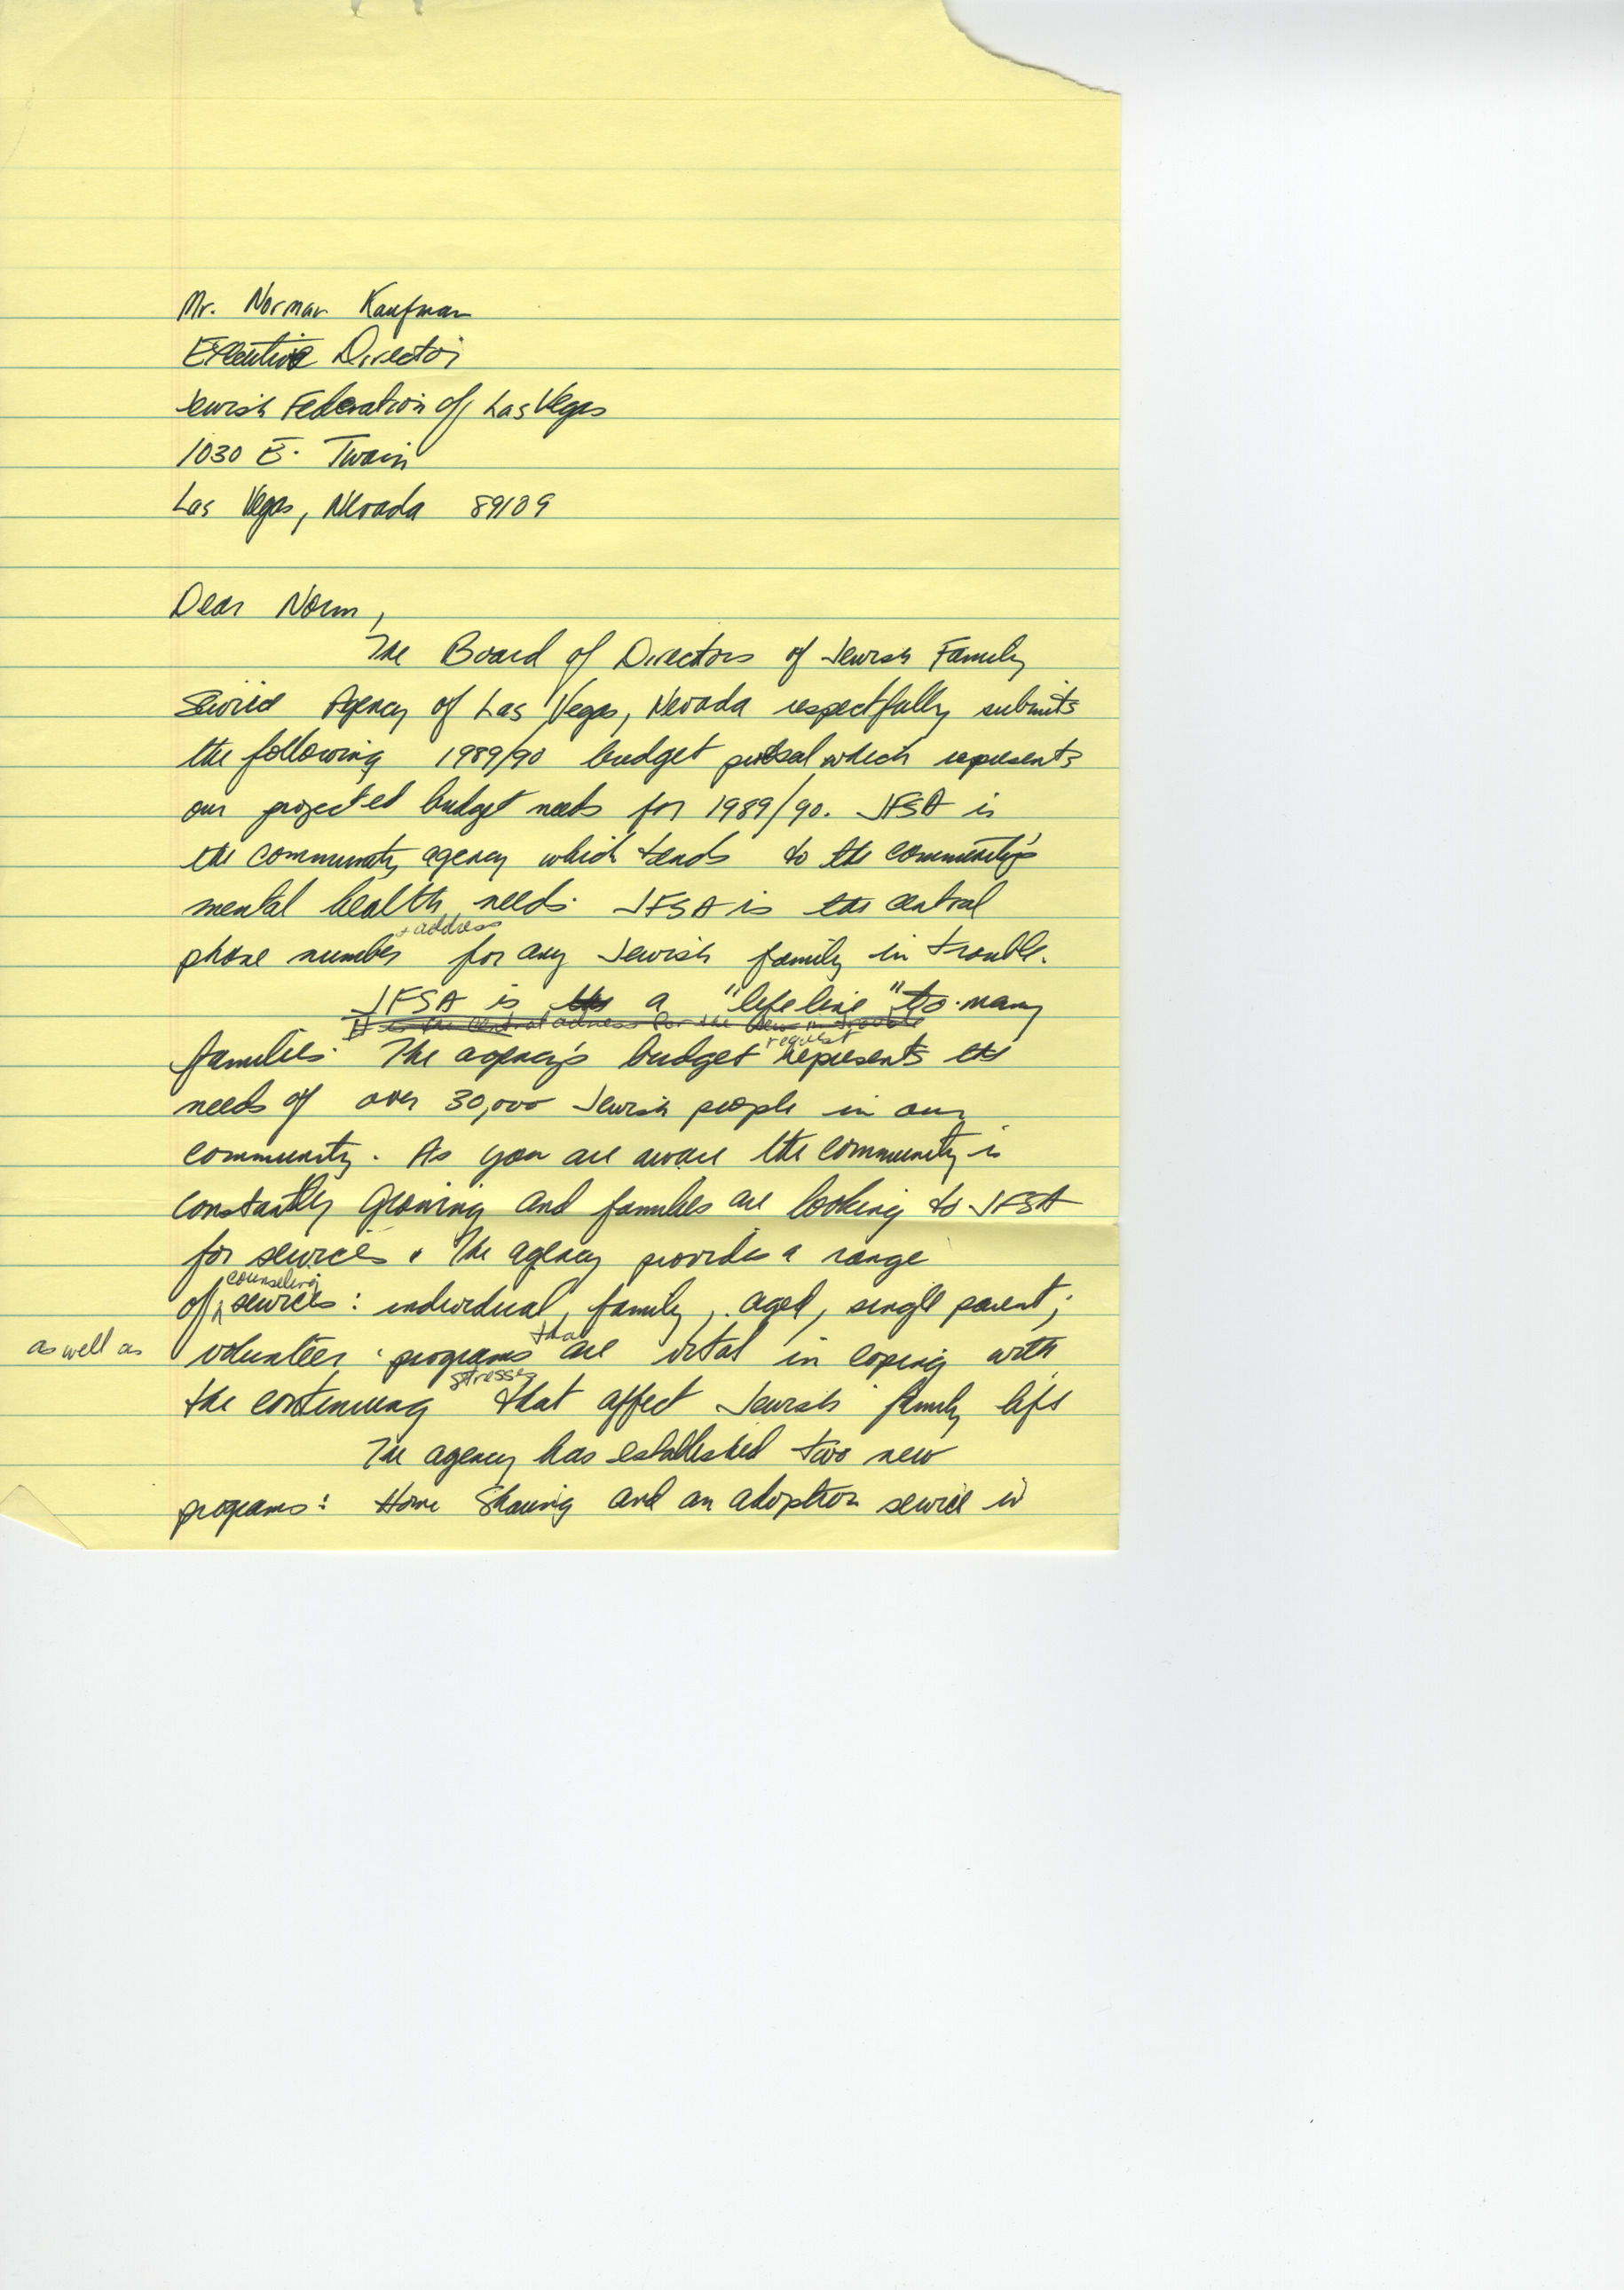 Mr. Norman Kaufman
Executive Director
Jewish Federation of Las Vegas
1030 E. Twain
Las Vegas, Nevada 89109
Dear Norm,
The Board of Directors of Jewish Family
Service Agency of Las Vegas, Nevada respectfully submits
the following 1989/90 budget which represents
our projected budget needs for 1989/90. JFSA is
the community agency which tends to the community's
mental health needs. JFSA is the central
+ address
phone number for any Jewish family in trouble.
JFSA is the a "life line" to many
It is the central adress for the Jew in trouble
request
families. The agency's budget represents the
needs of over 30,000 Jewish people in our
community. As you are aware the community is
constantly growing and families are looking to JFSA
for services. The agency provides a range
counseling
of services: individual, family, aged, single parent;
that
as well as volunteer programs are vital in coping with
stresses
the continuing that affect Jewish family life
The agency has established two new
programs: Home Sharing and an adoption service in